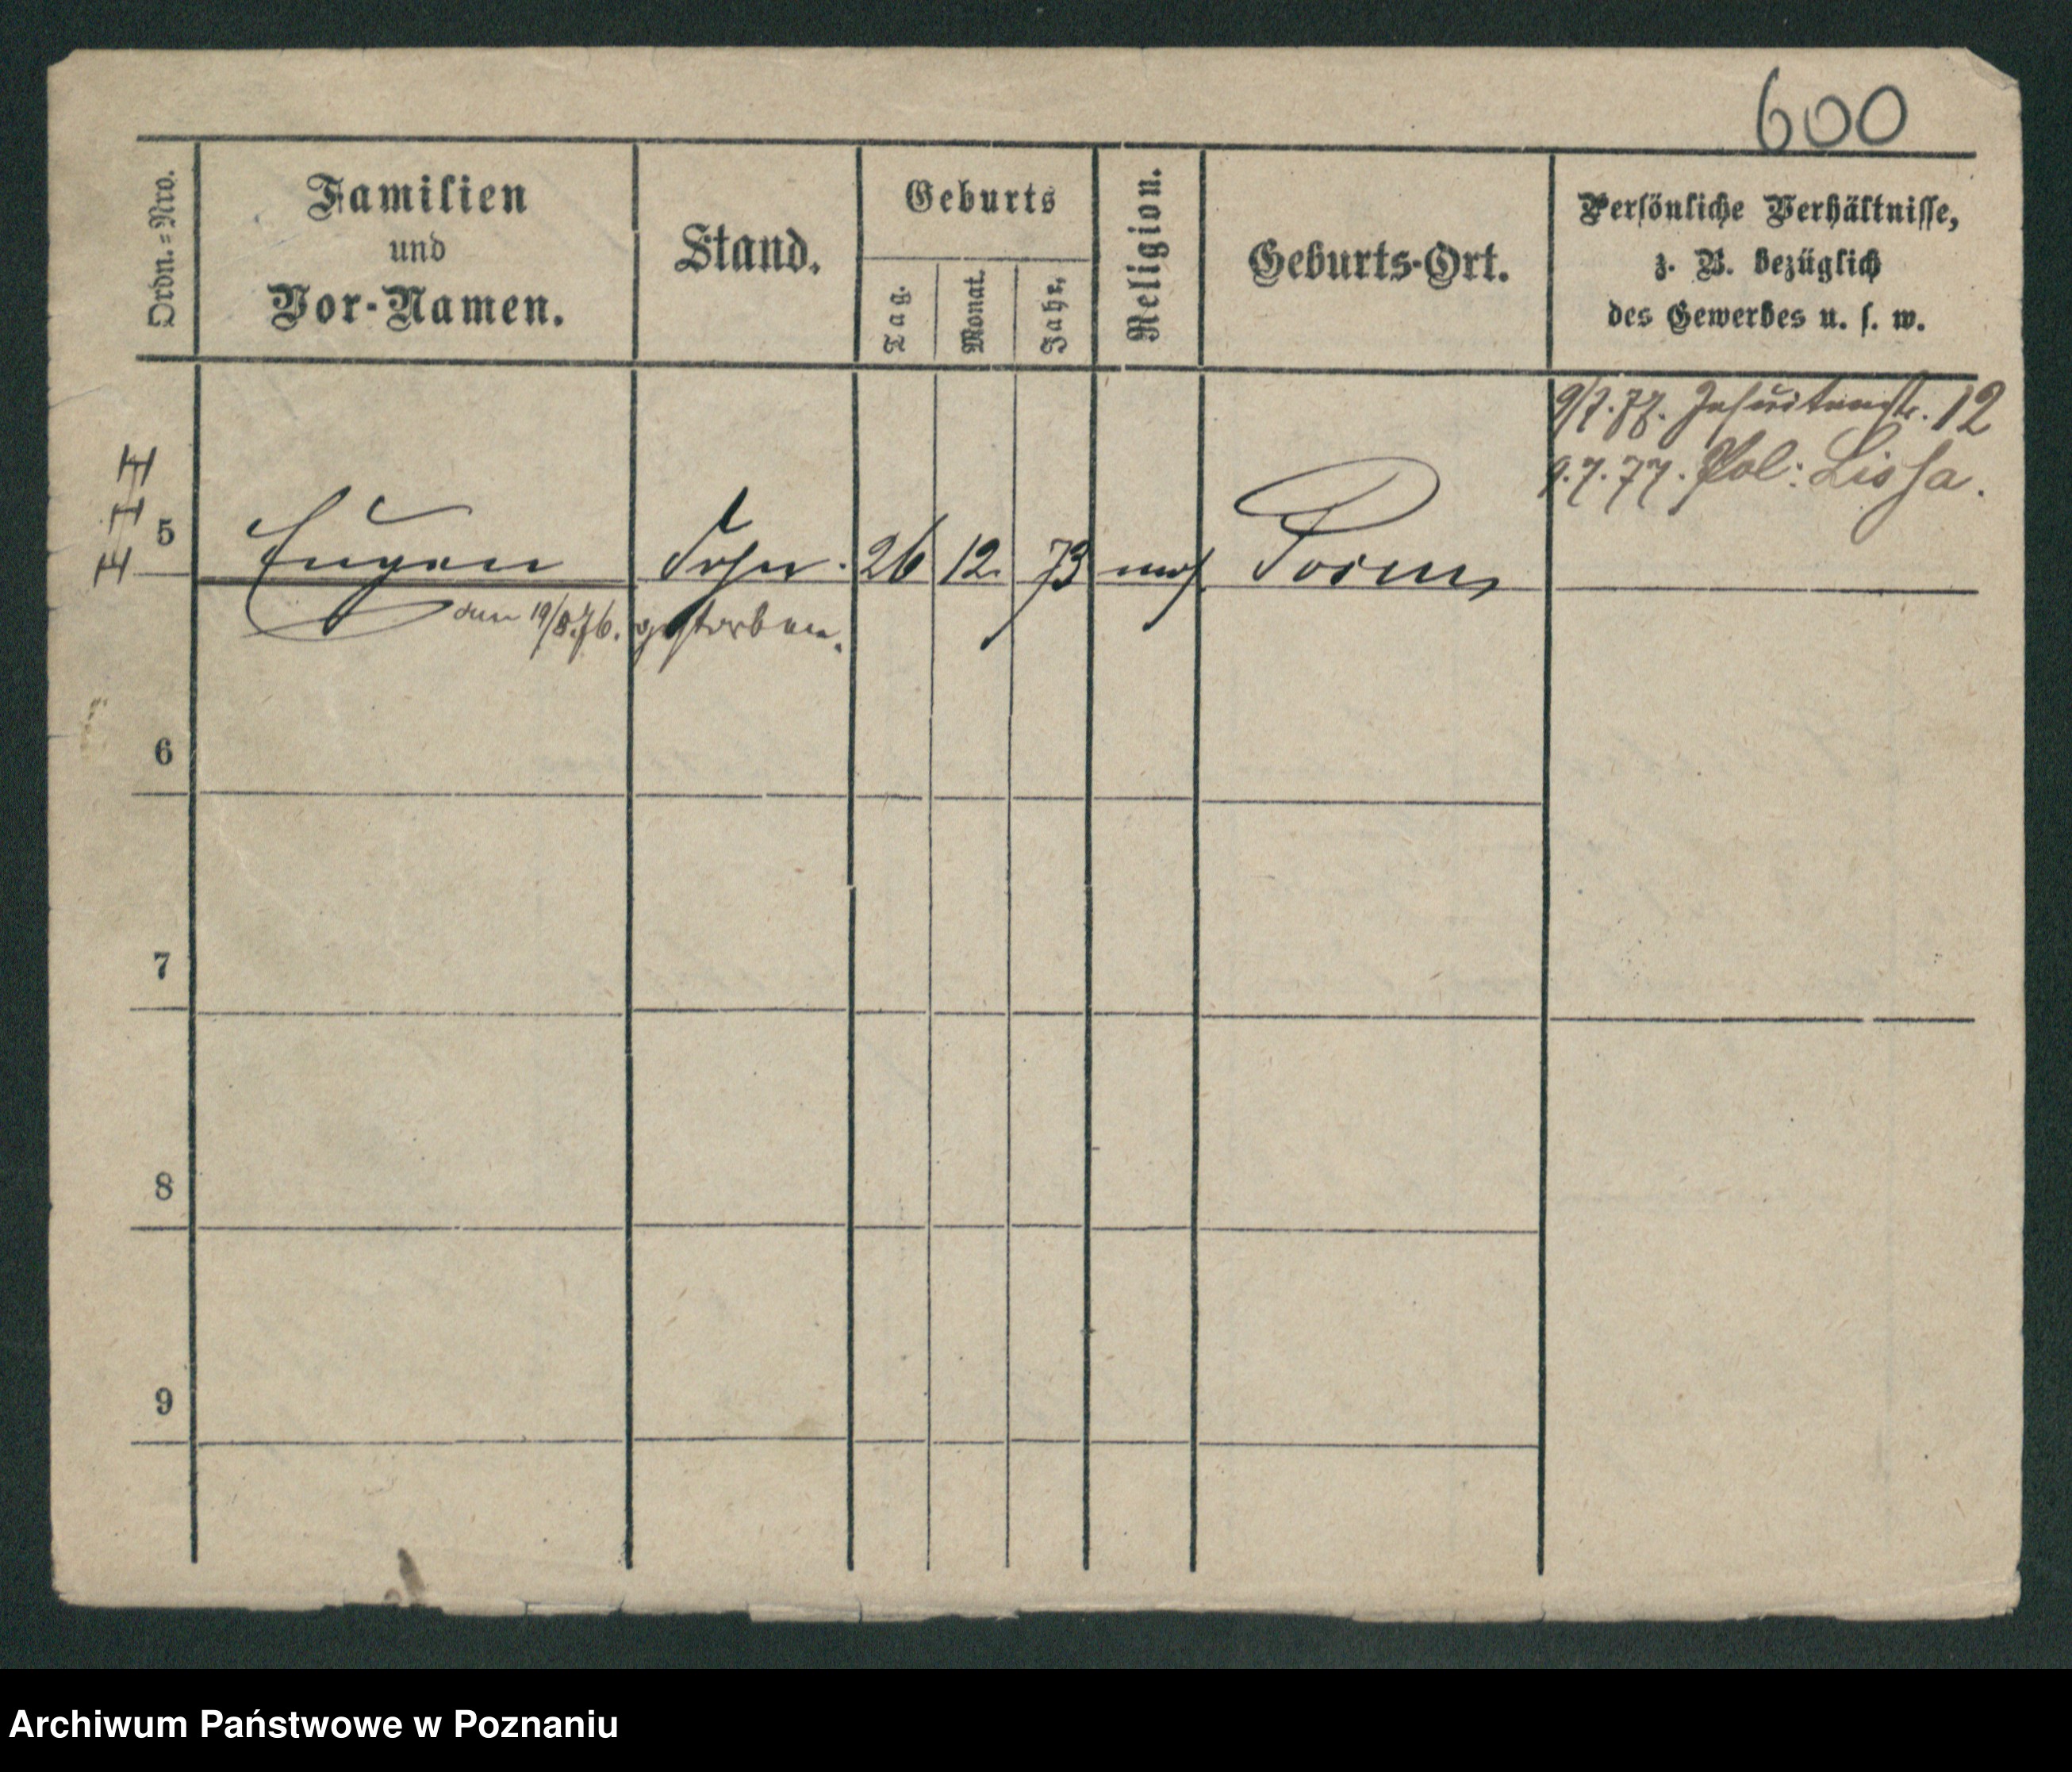 600
Ordn.=Nro.
Familien
und
Vor-Namen.
Stand.
Geburts
Tag.
Monat.
Jahr.
Religion.
Geburts-Ort.
Persönliche Verhältnisse,
z. B. bezüglich
des Gewerbes u. s. w.
9/7.77. Jesuitenstr. 12
9.7.77. Pol: Lissa.
5 Eugen Sohn. 26 12. 73 mos. Posen
den 19/8.76. gestorben.
6
7
8
9
Archiwum Państwowe w Poznaniu